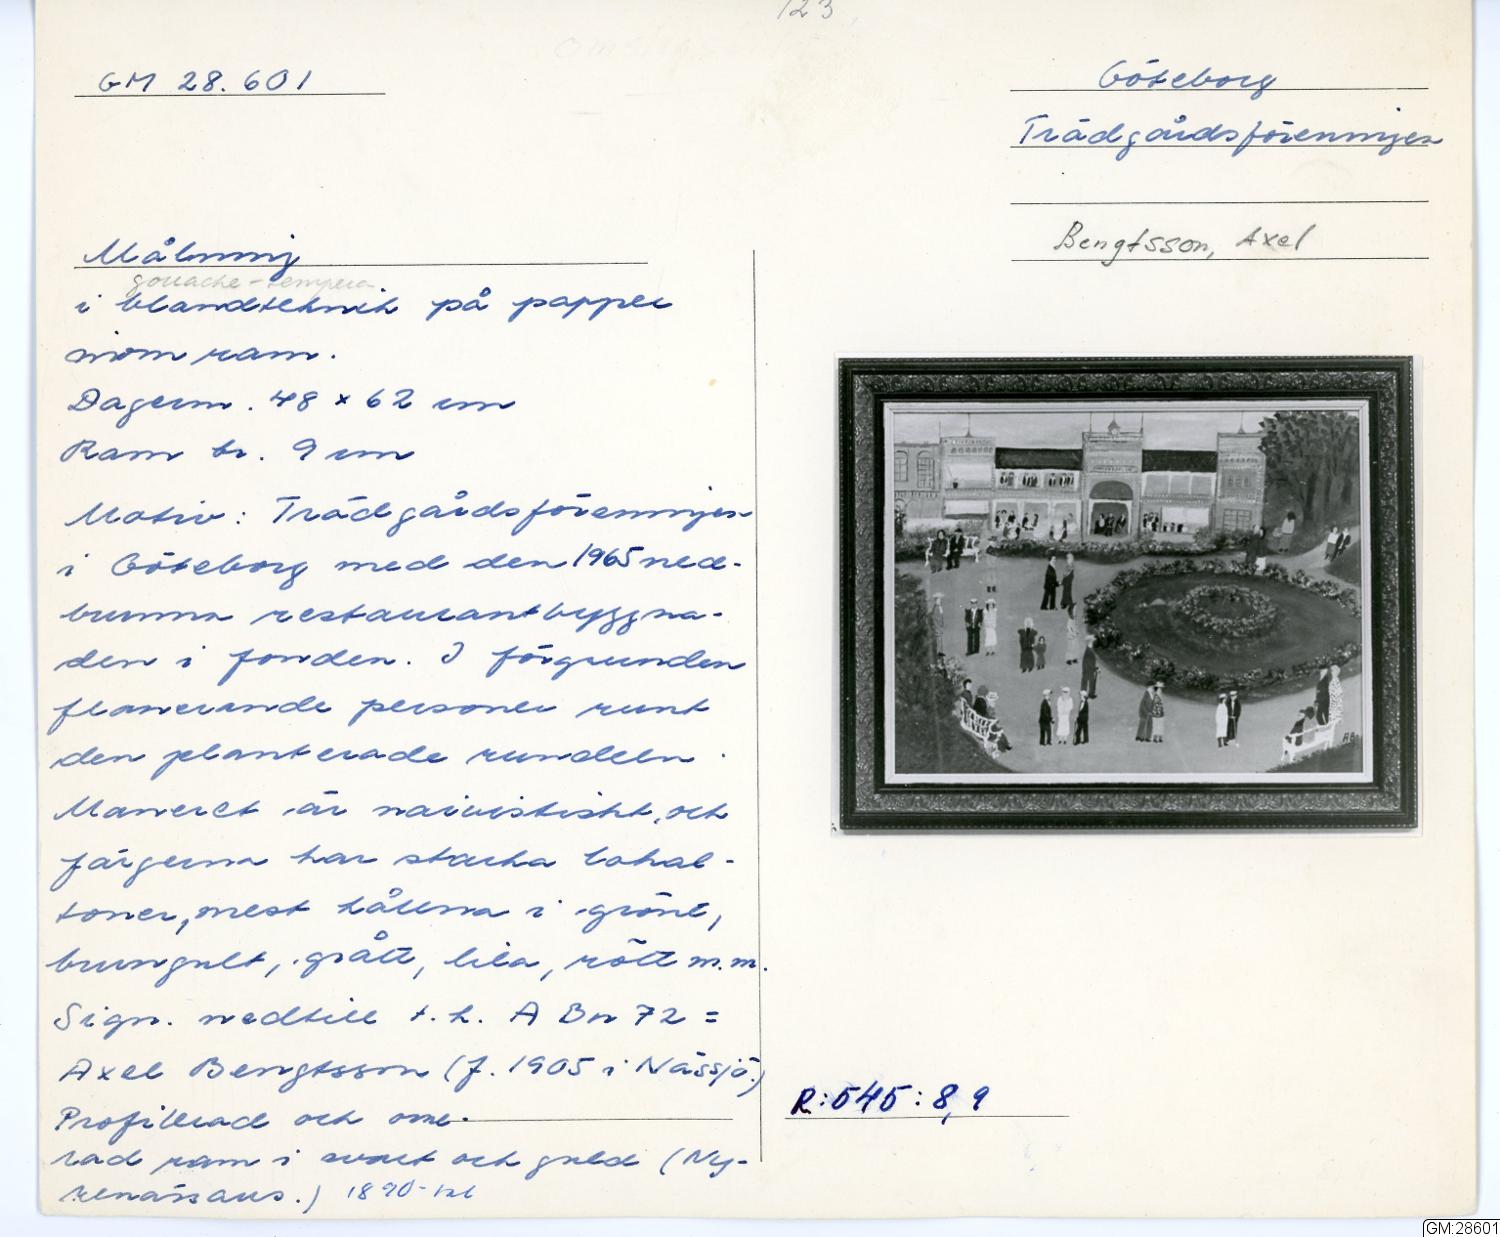 123
GM 28.601
Göteborg
Trädgårdsföreningen
Bengtsson, Axel
Målning
gouache-tempera
i blandteknik på papper
inom ram.
Dagerm. 48 x 62 cm
Ram br. 9 cm
Motiv: Trädgårdsföreningen
i Göteborg med den 1965 ned-
brunna restaurantbyggna-
den i fonden. I förgrunden
flanerande personer runt
den planterade rundeln.
Maneret är naivistiskt, och
färgerna har starka lokal-
toner, mest hållna i grönt,
brungult, grått, lila, rött m.m.
Sign. nedtill t.h. A Bn 72 =
Axel Bengtsson (f. 1905 i Nässjö.)
Profilerad och orne-
rad ram i svart och guld (Ny-
renässans.) 1890-tal
R:545:8,9
GM:28601